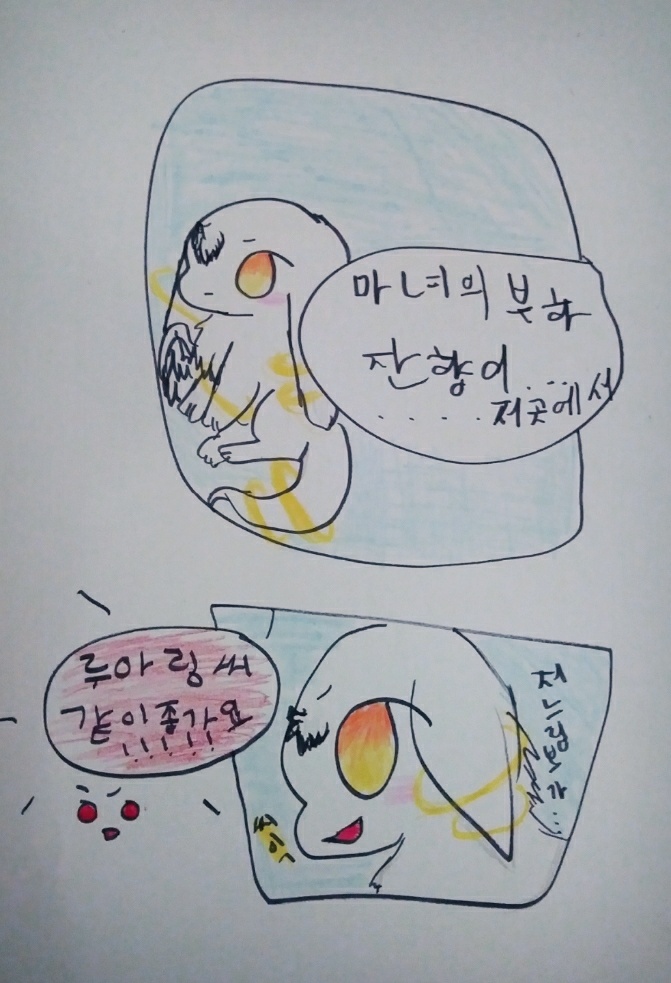 마녀의 부하
잔향이.....
.....저곳에서
루아링씨
같이좀가요
!!!!!
저느림보가...
씨익